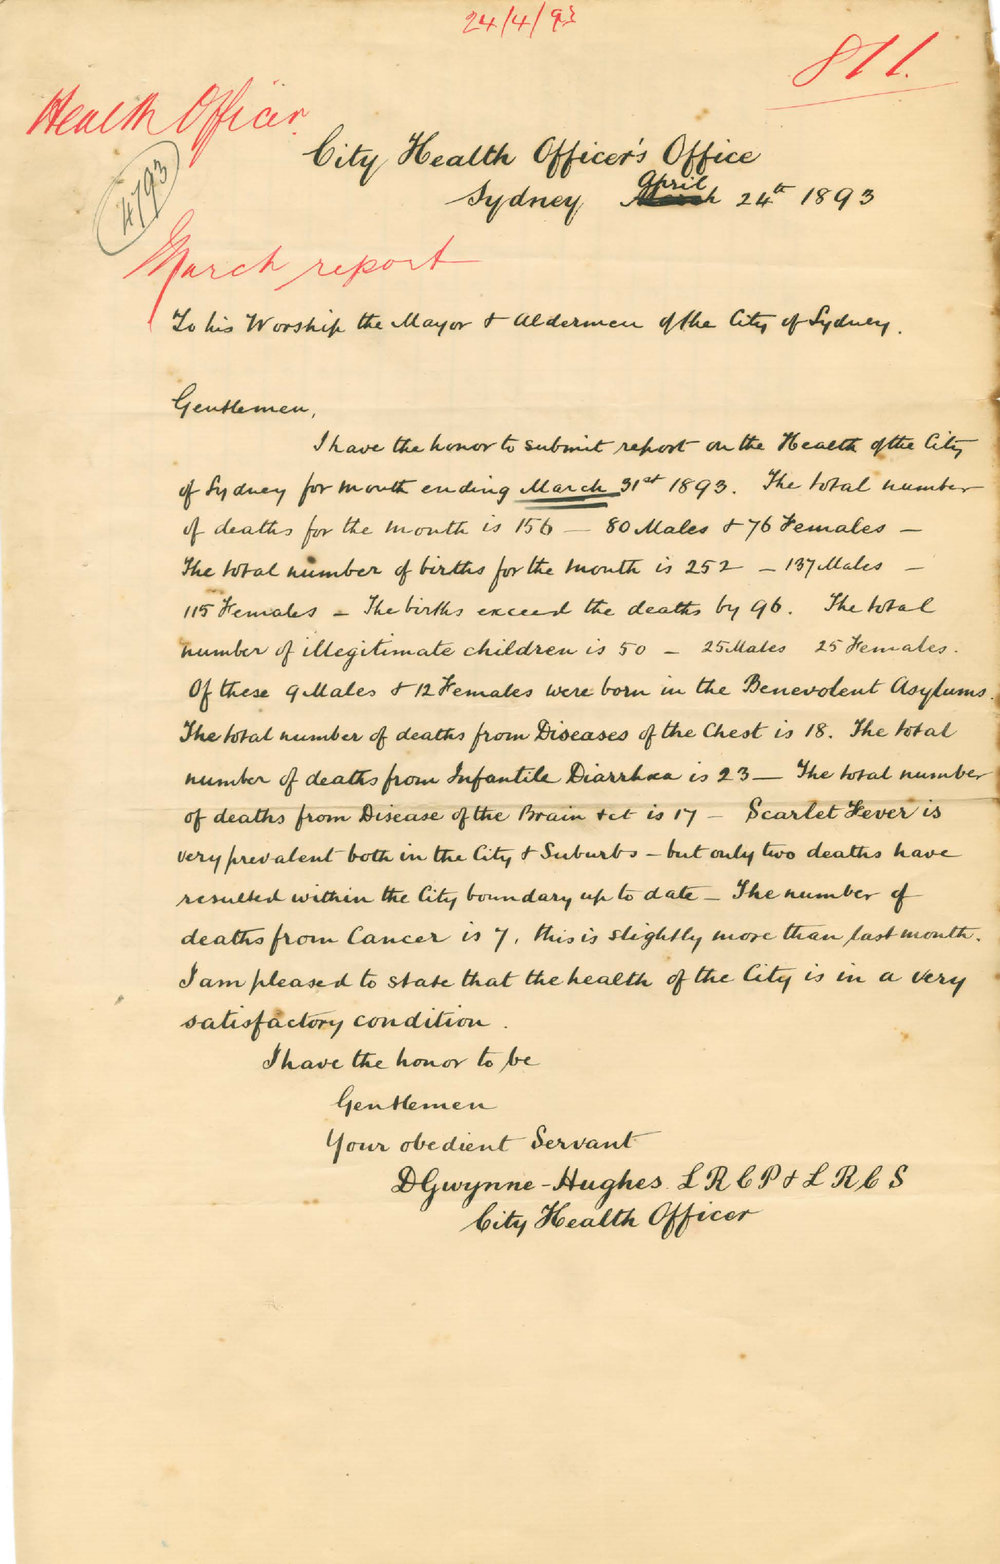 24/4/93
811.
Health Officer.
4/93
City Health Officer's Office
April
Sydney March 24th 1893
March report
To his Worship the Mayor & Aldermen of the City of Sydney.
Gentlemen,
I have the honor to submit report on the Health of the City
of Sydney for month ending March 31st 1893. The total number
of deaths for the month is 156 — 80 Males & 76 Females —
The total number of births for the month is 252 — 137 Males —
115 Females — The births exceed the deaths by 96. The total
number of illegitimate children is 50 — 25 Males 25 Females.
Of these 9 Males & 12 Females were born in the Benevolent Asylums.
The total number of deaths from Diseases of the Chest is 18. The total
number of deaths from Infantile Diarrhœa is 23 — The total number
of deaths from Disease of the Brain &ct is 17 — Scarlet Fever is
very prevalent both in the City & Suburbs — but only two deaths have
resulted within the City boundary up to date — The number of
deaths from Cancer is 7, this is slightly more than last month.
I am pleased to state that the health of the City is in a very
satisfactory condition.
I have the honor to be
Gentlemen
Your obedient Servant
D Gwynne-Hughes. L R C P & L R C S
City Health Officer